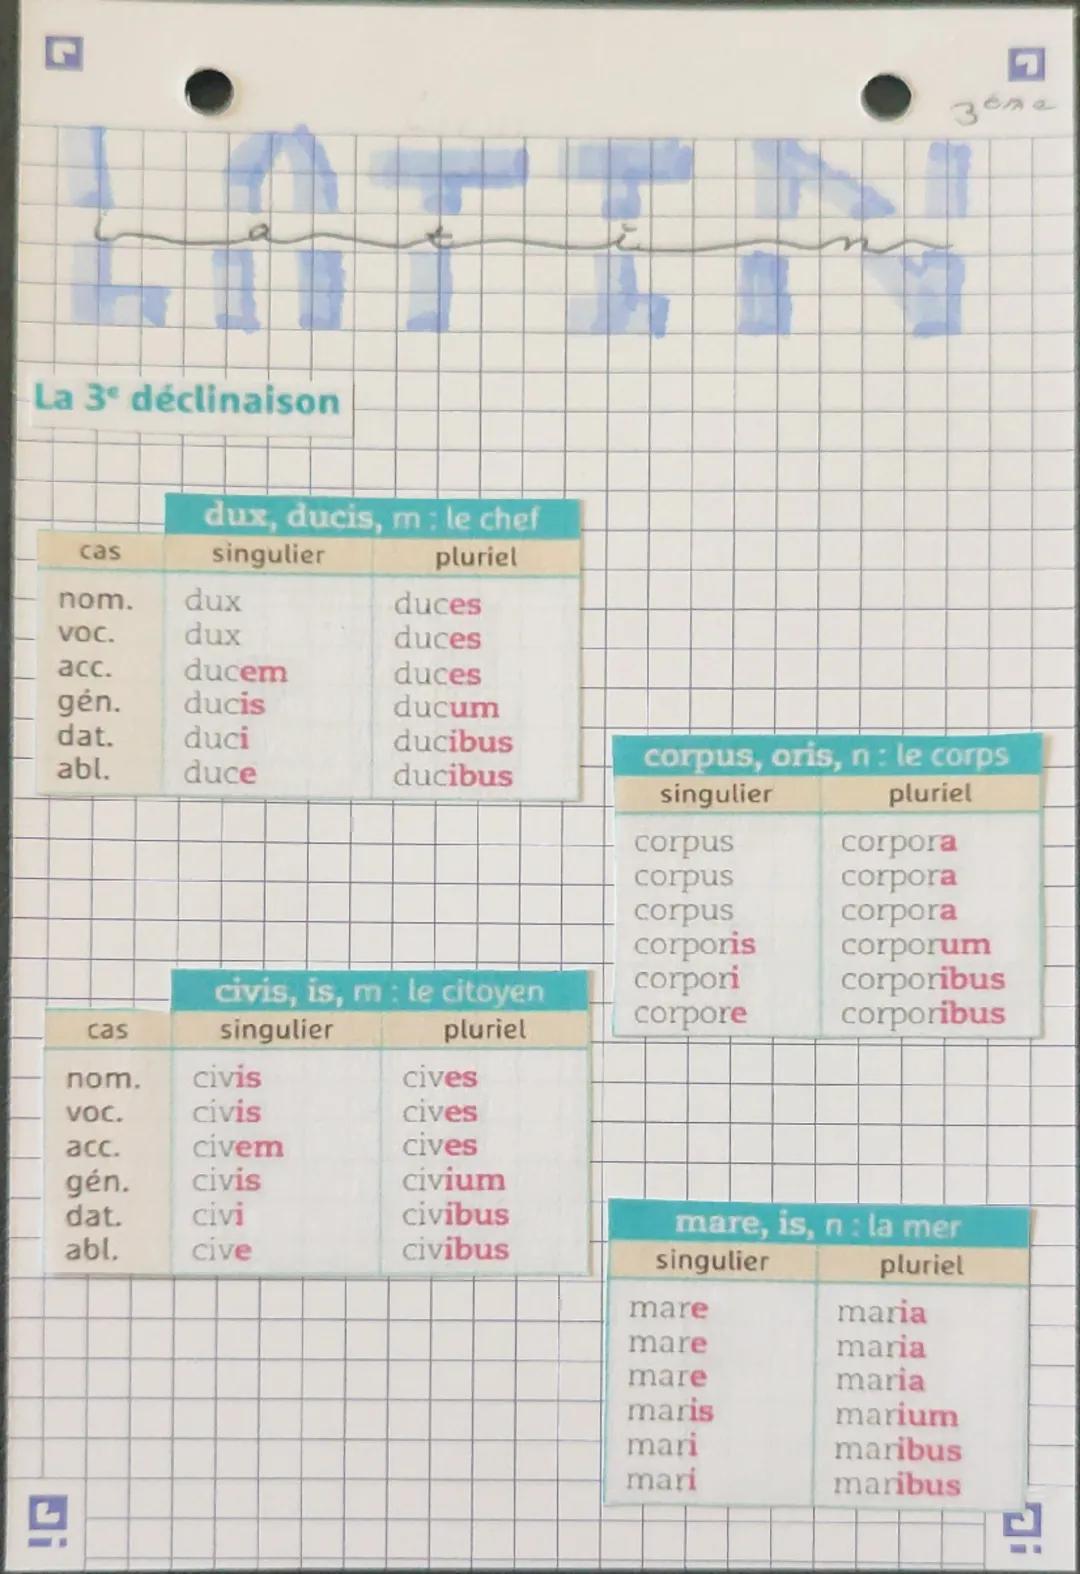 3ème
LATIN
latin
La 3e déclinaison
dux, ducis, m : le chef
cas singulier pluriel
nom. dux duces
voc. dux duces
acc. ducem duces
gén. ducis ducum
dat. duci ducibus
abl. duce ducibus
corpus, oris, n : le corps
singulier pluriel
corpus corpora
corpus corpora
corpus corpora
corporis corporum
corpori corporibus
corpore corporibus
civis, is, m : le citoyen
cas singulier pluriel
nom. civis cives
voc. civis cives
acc. civem cives
gén. civis civium
dat. civi civibus
abl. cive civibus
mare, is, n : la mer
singulier pluriel
mare maria
mare maria
mare maria
maris marium
mari maribus
mari maribus